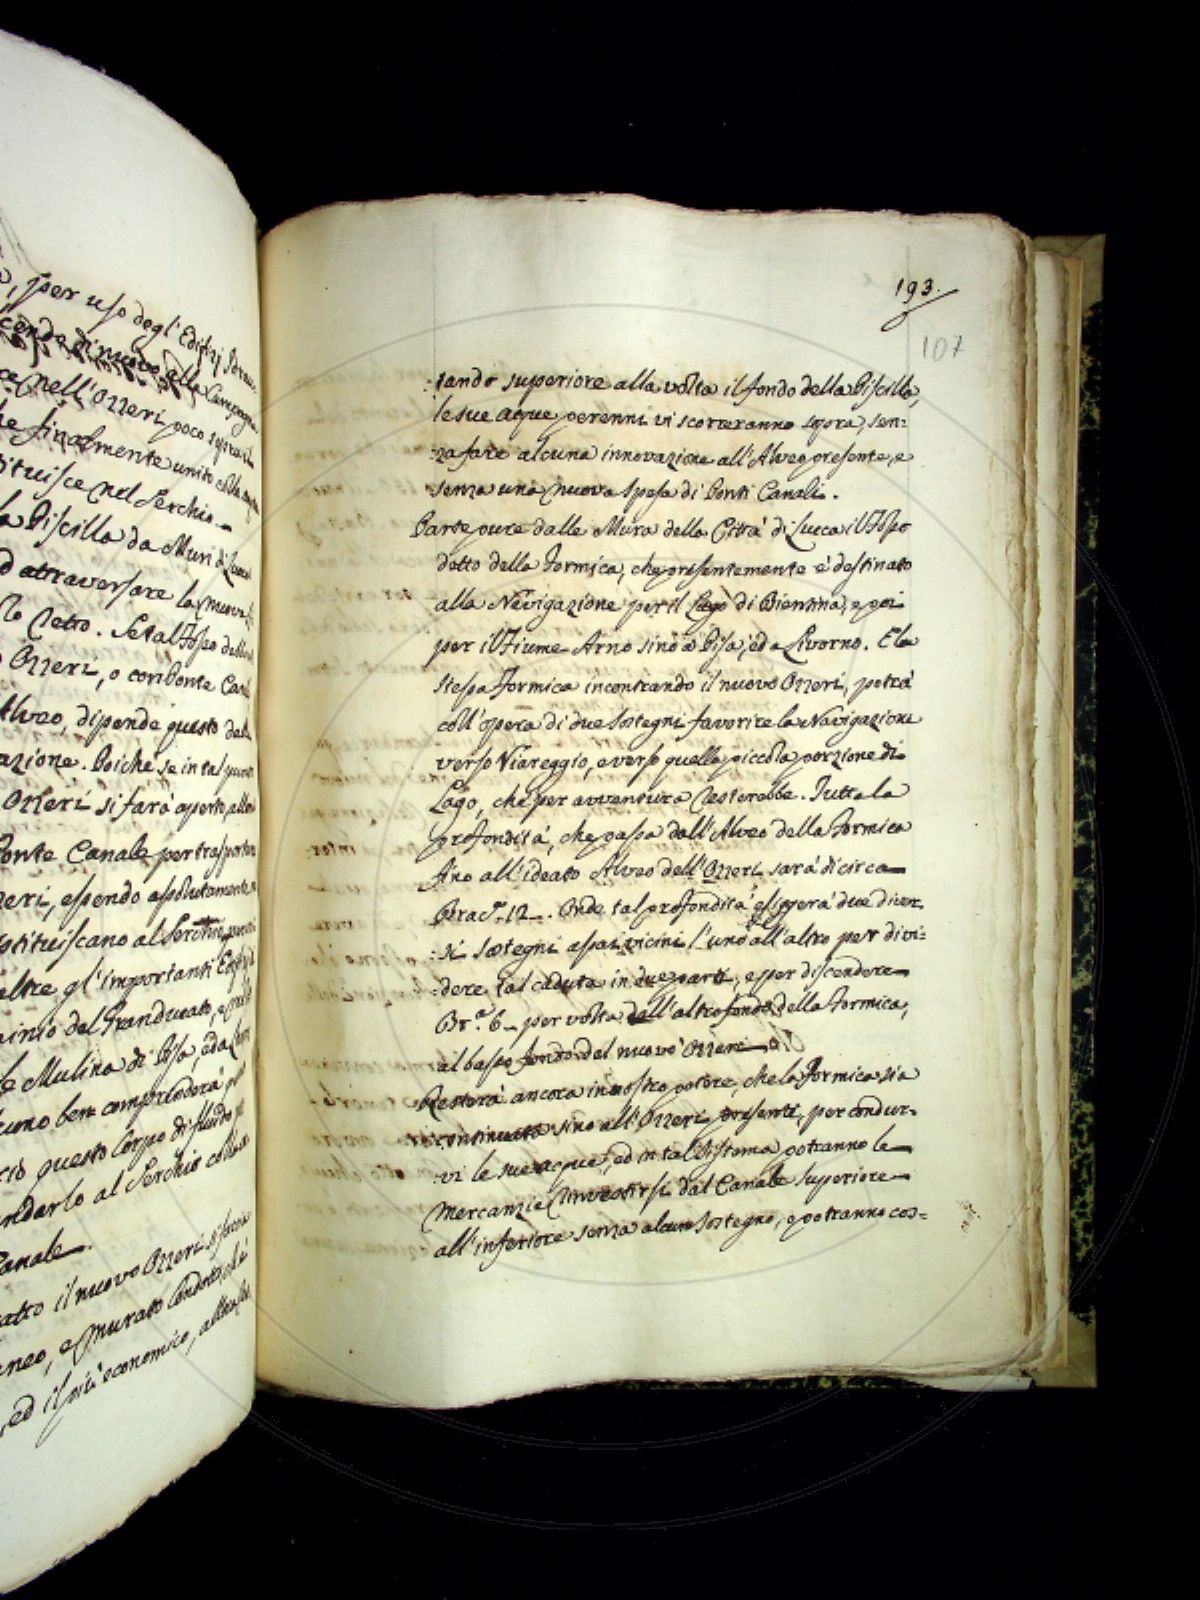 per uso degl'Edifizj Idrau-
scende di nuovo alla Campagna
nell'Ozzeri poco sopra il
finalmente unito colle
tituisce nel Serchio.
la Piscilla da Muri di Lucca
ad atraversare la nuova
lo retto. Se tal Fosso dello
Ozzeri, o con Ponte Cana
Alveo, dipende questo dal
azione. Poiche se in tal punto
Ozzeri si fara aperto, allo
Ponte Canale per trasportare
zeri, essendo assolutamente
stituiscano al Serchio
oltre gl'importanti Edifizj
minio del Granducato, e
le Mulina di Pisa, ed a
cuno ben comprenderà
ciò questo Corpo di fluido
andarlo al Serchio colla
Canale.
tratto il nuovo Ozzeri si faccia
aneo, e murato Condotto, ch'è
ed il più economico, allora
193.
107
:tando superiore alla volta il fondo della Piscilla,
le sue Acque perenni vi scorreranno sopra, sen:
:za fare alcuna innovazione all'Alveo presente, e
senza una nuova spesa di Ponti Canali.
Parte pure dalle Mura della Città di Lucca il Fosso
detto della Formica, che presentemente è destinato
alla Nevigazione per il Lago di Bientina, e poi
per il Fiume Arno sino a Pisa, ed a Livorno. E la
stessa Formica incontrando il nuovo Ozzeri, potrà
coll'opera di due sostegni favorire la Navigazione
verso Viareggio, e verso quella piccola porzione di
Lago, che per avventura resterebbe. Tutta la
profondità, che passa dall'Alveo della Formica
fino all'ideato Alveo dell'Ozzeri sarà di circa
Braca. 12. Onde tal profondità esiggerà due diver-
:si sostegni assai vicini l'uno all'altro per divi=
:dere tal caduta in due parti, e per discendere
Bra. 6 per volta dall'alto fondo della Formica,
al basso fondo del nuovo Ozzeri.
Resterà ancora in nostro potere, che la Formica sia
continuata sino all'Ozzeri presente, per condur-
:vi le sue acque, ed in tal Sistema potranno le
Mercanzie rinvestirsi dal Canale superiore
all'inferiore senza alcun sostegno, e potranno cos=